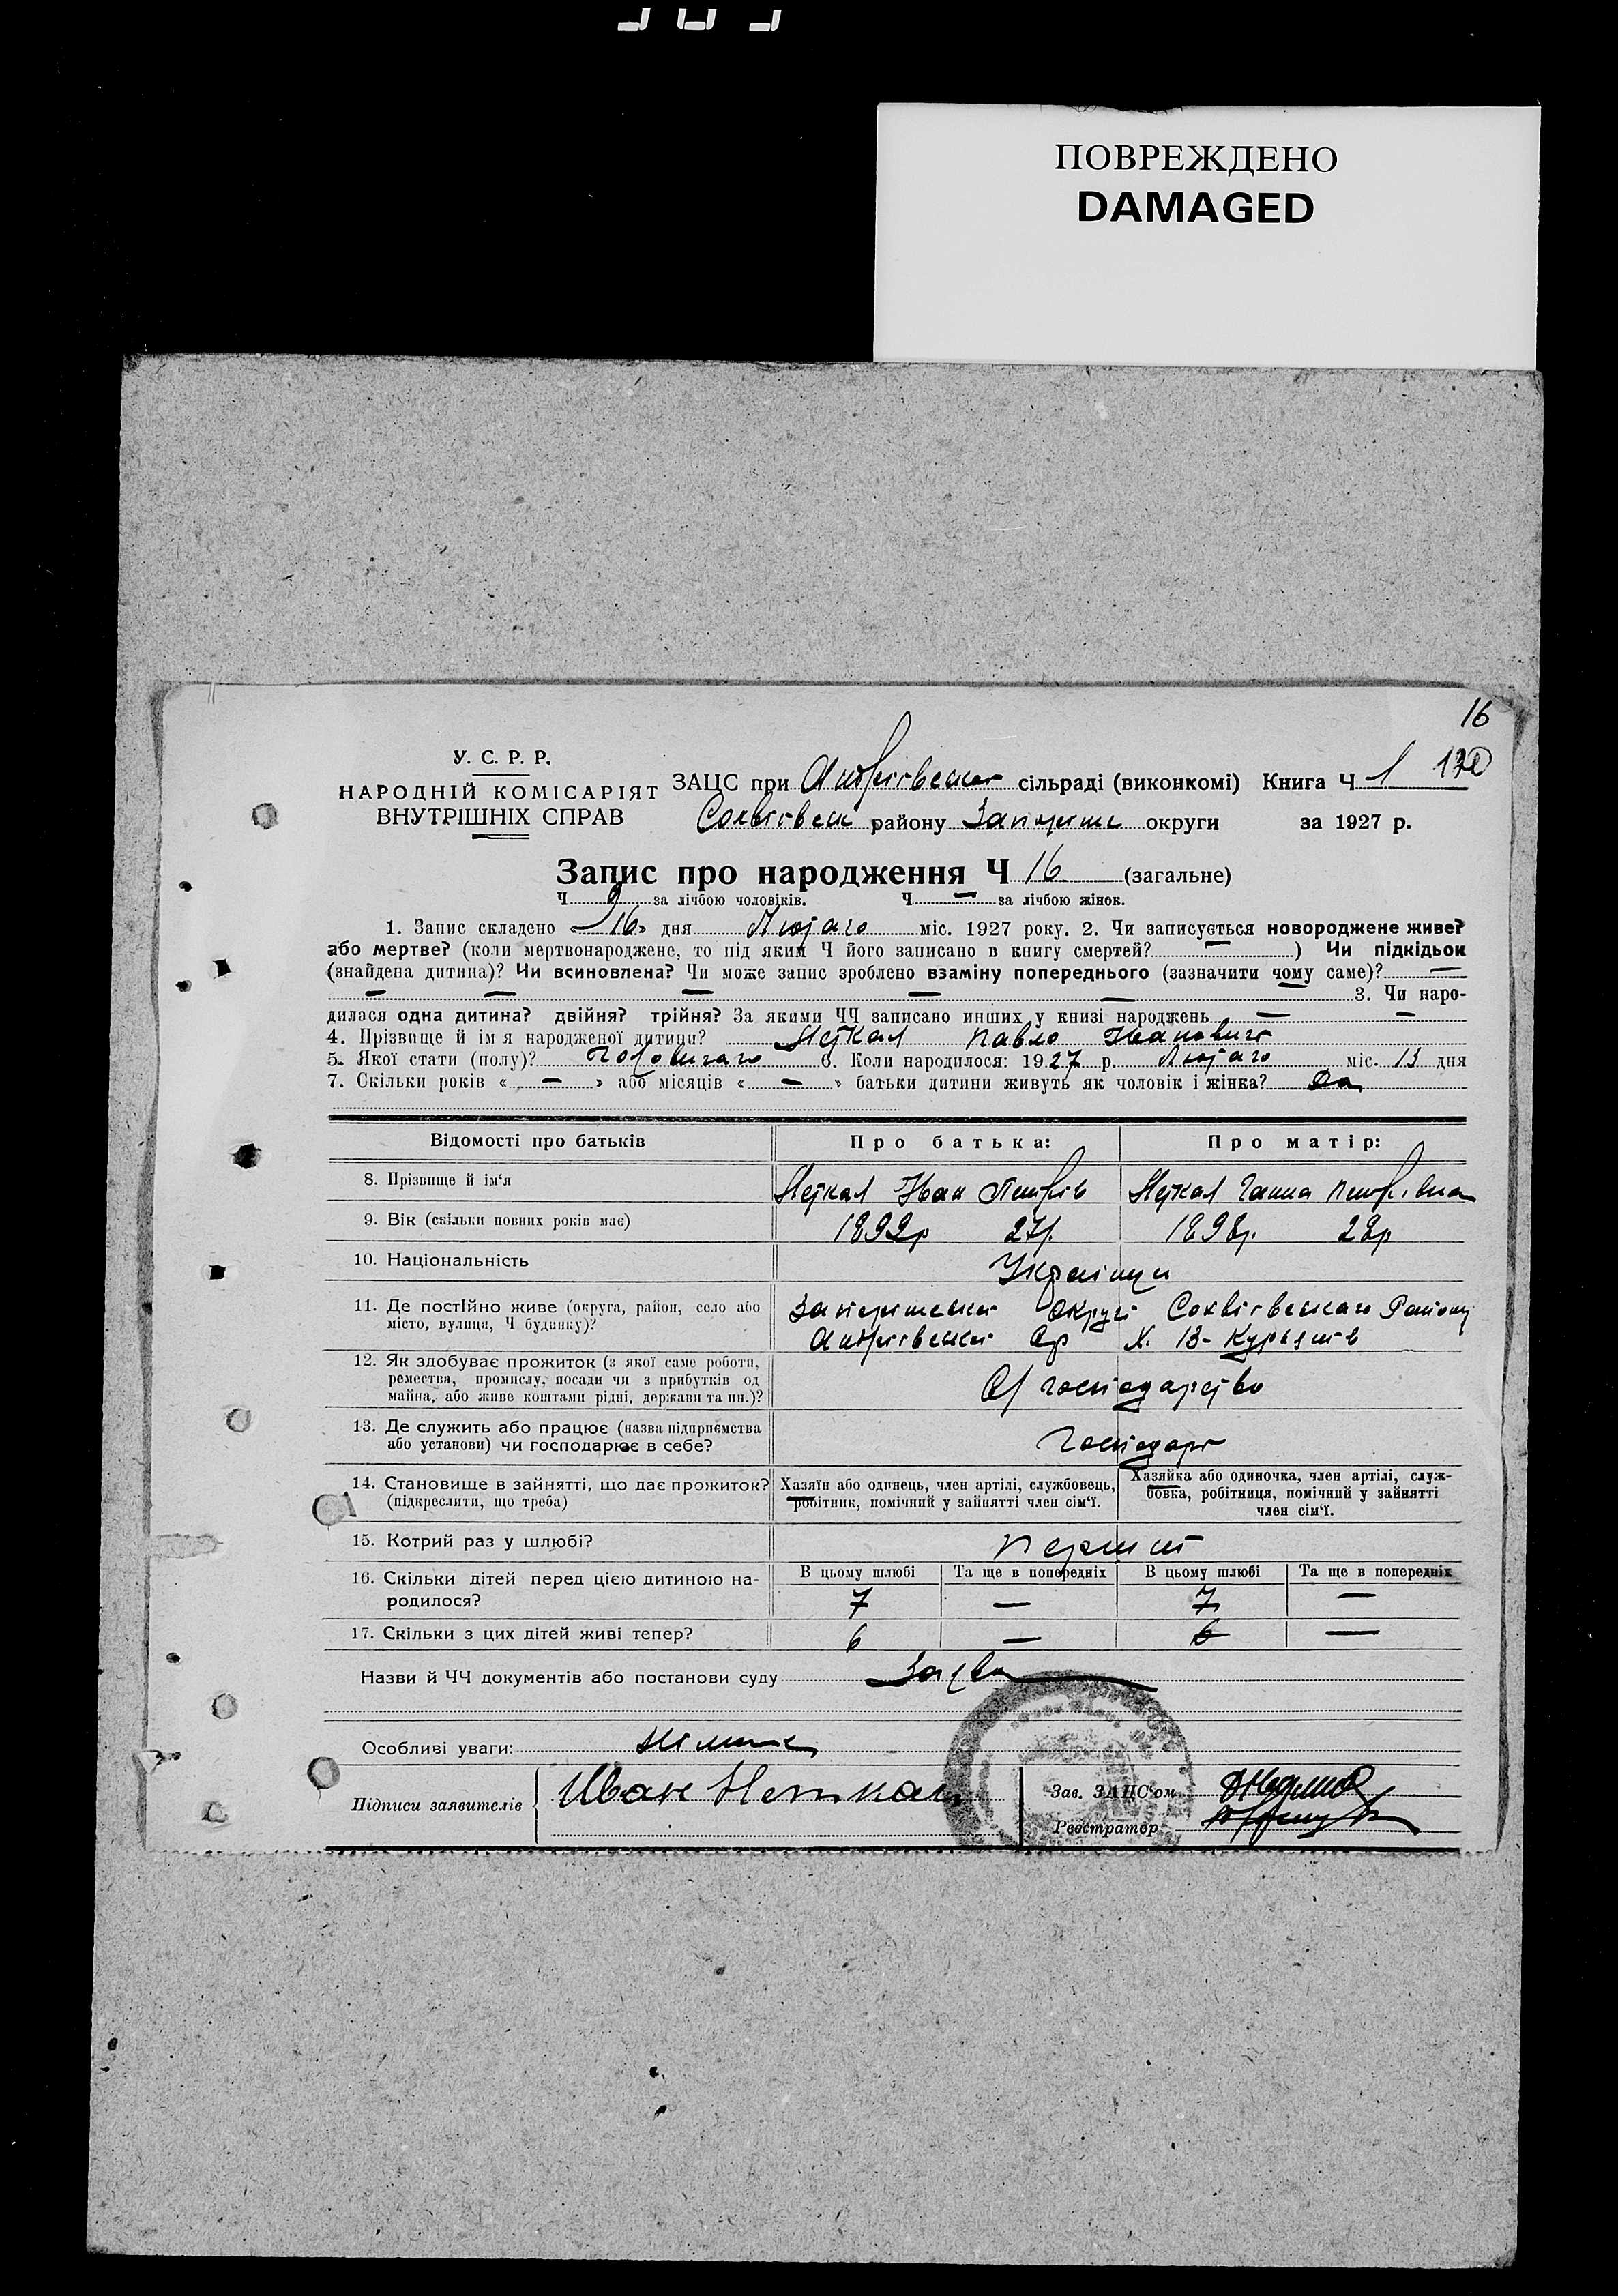 ПОВРЕЖДЕНО
DAMAGED
16
У. С. Р. Р.
НАРОДНІЙ КОМІСАРІЯТ
ВНУТРІШНІХ СПРАВ
ЗАЦС при сільраді (виконкомі) Книга Ч 1
району округи за 1927 р.
Запис про народження Ч 16 (загальне)
Ч 9 за лічбою чоловіків. Ч — за лічбою жінок.
1. Запис складено « 16 » дня Лютаго міс. 1927 року. 2. Чи записується новороджене живе?
або мертве? (коли мертвонароджене, то під яким Ч його записано в книгу смертей? — ) Чи підкідьок
(знайдена дитина)? Чи всиновлена? Чи може запис зроблено взаміну попереднього (зазначити чому саме)? —
— — — — — — 3. Чи наро-
дилася одна дитина? двійня? трійня? За якими ЧЧ записано инших у книзі народжень — —
4. Прізвище й ім я народженої дитини? Неткал Павло Іванович
5. Якої стати (полу)? 6. Коли народилося: 1927 р. Лютаго міс. 13 дня
7. Скільки років « — » або місяців « — » батьки дитини живуть як чоловік і жінка? Да
Відомості про батьків
Про батька:
Про матір:
8. Прізвище й ім‘я
Неткал Іван Петрів
Неткал Ганна Петрівна
9. Вік (скільки повних років має)
1892р
1898р. 28р
10. Національність
Українци
11. Де постІйно живе (округа, район, село або
місто, вулиця, Ч будинку)?
округі Району
12. Як здобуває прожиток (з якої саме роботи,
ремества, промислу, посади чи з прибутків од
майна, або живе коштами рідні, держави та ин.)?
господарство
13. Де служить або працює (назва підприємства
або установи) чи господарює в себе?
14. Становище в зайнятті, що дає прожиток?
(підкреслити, що треба)
Хазяїн або одинець, член артілі, службовець,
робітник, помічний у зайнятті член сім‘ї.
Хазяйка або одиночка, член артілі, служ-
бовка, робітниця, помічний у зайнятті
член сім‘ї.
15. Котрий раз у шлюбі?
16. Скільки дітей перед цією дитиною на-
родилося?
В цьому шлюбі
Та ще в попередніх
В цьому шлюбі
Та ще в попередніх
7 — 7 —
17. Скільки з цих дітей живі тепер?
6 — 6 —
Назви й ЧЧ документів або постанови суду Заява
Особливі уваги:
Підписи заявителів Иван Неткал
Зав. ЗАЦС‘ом
Реєстратор